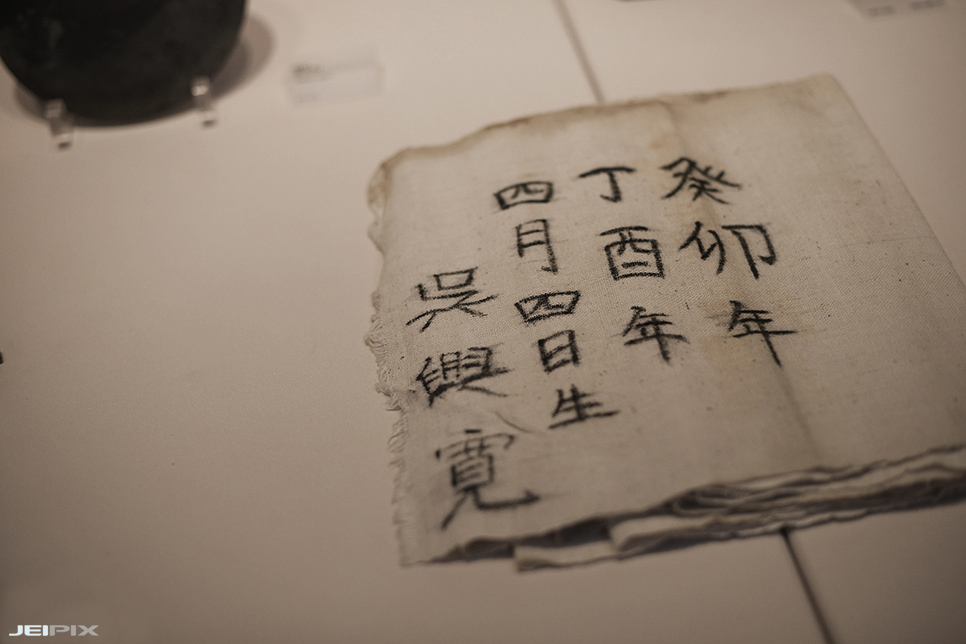 癸卯年
丁酉年
四月四日生
吳興寛
JEIPIX